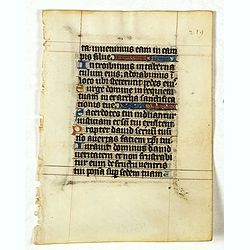 219
ta. invenimus eam in cam
pis silue.
Introibimus in taberna
culum eius: adorabimus i
loco ubi steterunt pedes eius
Surge domine in requiem
tuam tu et archa sanctifica
tionis tue.
Sacerdotes tui induantur
iusticiam et sancti tui exultent
Propter david servum tuum
non avertas faciem christi tui
Iuravit dominus david
veritatem et non frustrabit
eum de fructu ventris
tui ponam super sedem tuam